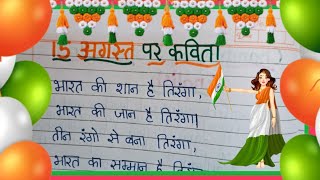 15 अगस्त पर कविता
भारत की शान है तिरंगा,
भारत की जान है तिरंगा।
तीन रंगो से बना तिरंगा,
भारत का सम्मान है